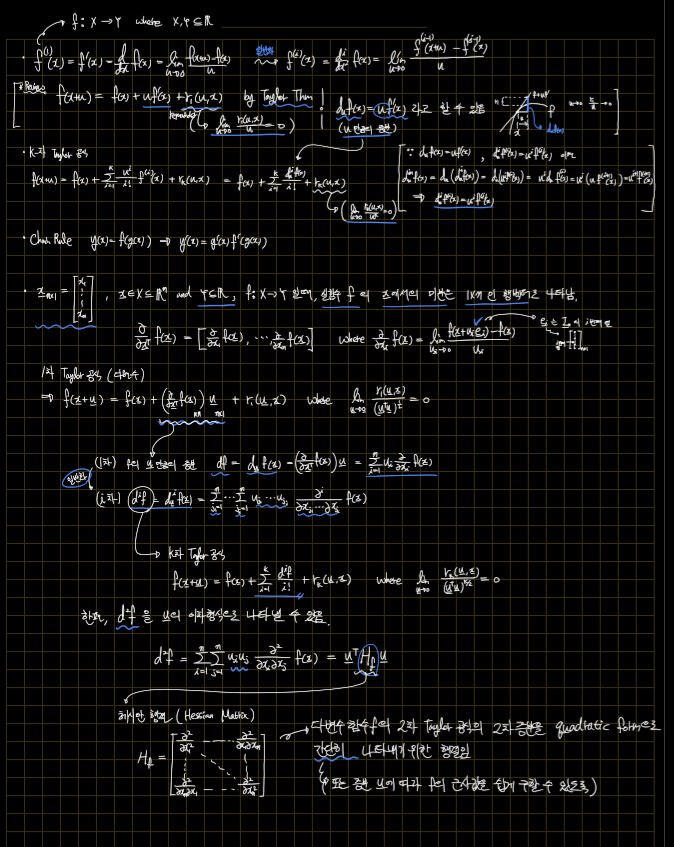 f : X → Y where X, Y ⊆ ℝ
· f⁽¹⁾(x) = f'(x) = d/dx f(x) = lim_{u→0} (f(x+u) - f(x))/u 일반화 ⇝ f⁽ⁱ⁾(x) = dⁱ/dxⁱ f(x) = lim_{u→0} (f⁽ⁱ⁻¹⁾(x+u) - f⁽ⁱ⁻¹⁾(x))/u
f(x+u) = f(x) + uf'(x) + r₁(u,x) by Taylor Thm ! d_u f(x) = uf'(x) 라고 할 수 있음
remainder ( lim_{u→0} r₁(u,x)/u = 0 ) (u 만큼의 증분)
· K차 Taylor 공식
f(x+u) = f(x) + Σ_{i=1}^{k} uⁱ/i! f⁽ⁱ⁾(x) + r_k(u,x) = f(x) + Σ_{i=1}^{k} dⁱf(x)/i! + r_k(u,x)
( lim_{u→0} r_k(u,x)/uᵏ = 0 )
∵ d_u f(x) = uf'(x)
· Chain Rule y(x) = f(g(x)) → y'(x) = g'(x) f'(g(x))
· x_{n×1} = [x₁ ⋮ x_n], x ∈ X ⊆ ℝⁿ and Y ⊆ ℝ, f : X → Y 일 때, 실함수 f 의 x에서의 미분은 1×n 인 행벡터로 나타남.
∂/∂xᵀ f(x) = [∂/∂x₁ f(x), ⋯, ∂/∂x_n f(x)] where ∂/∂x_i f(x) = lim_{u_i→0} (f(x+u_i e_i) - f(x))/u_i
1차 Taylor 공식 (다변수)
⇒ f(x+u) = f(x) + (∂/∂xᵀ f(x)) u + r₁(u,x) where lim_{u→0} r₁(u,x)/(uᵀu)^{1/2} = 0
1×n n×1
(1차) f의 u 만큼의 증분 df = d_u f(x) = (∂/∂xᵀ f(x)) u = Σ_{i=1}^{n} u_i ∂/∂x_i f(x)
일반화
(i차) dⁱf = d_uⁱ f(x) = Σ_{j₁=1}^{n} ⋯ Σ_{j_i=1}^{n} u_{j₁} ⋯ u_{j_i} ∂ⁱ/∂x_{j₁}⋯∂x_{j_i} f(x)
→ K차 Taylor 공식
f(x+u) = f(x) + Σ_{i=1}^{k} dⁱf/i! + r_k(u,x) where lim_{u→0} r_k(u,x)/(uᵀu)^{k/2} = 0
한편, d²f 을 u의 이차형식으로 나타낼 수 있음.
d²f = Σ_{i=1}^{n} Σ_{j=1}^{n} u_i u_j ∂²/∂x_i∂x_j f(x) = uᵀ H_f u
헤시안 행렬 (Hessian Matrix)
→ 다변수 함수 f의 2차 Taylor 공식의 2차 증분을 quadratic form으로
H_f = [∂²/∂x₁² ⋯ ∂²/∂x₁∂x_n ⋮ ⋱ ⋮ ∂²/∂x_n∂x₁ ⋯ ∂²/∂x_n²]
간단히 나타내기 위한 행렬임
(또는 증분 u에 따라 f의 근사값을 쉽게 구할 수 있도록)